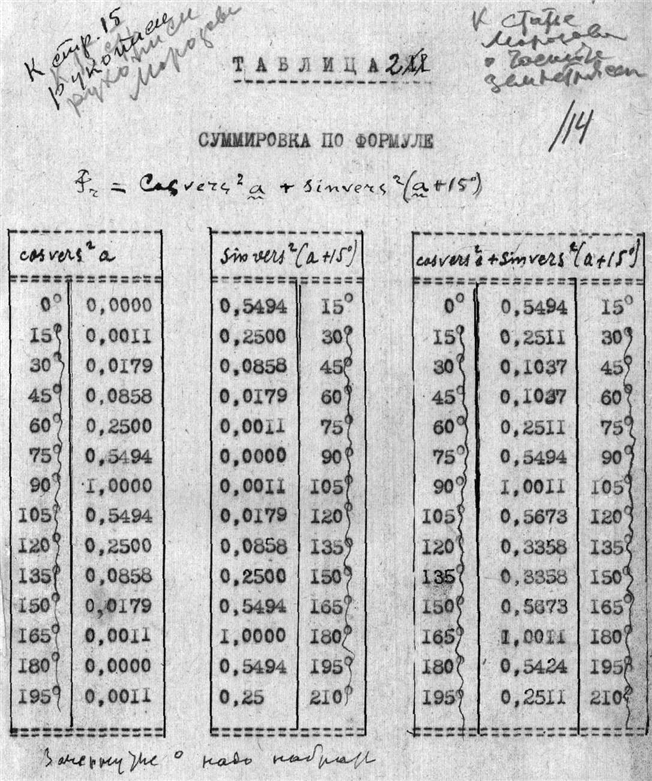 К стр. 15
рукописи
Морозова
К статье
Морозова
о
/14
ТАБЛИЦА 2
СУММИРОВКА ПО ФОРМУЛЕ
= cosvers² a + sinvers² (a + 15°)
cosvers² a | sinvers² (a + 15°) | cosvers² a + sinvers² (a + 15°)
0° 0,0000 | 0,5494 15° | 0° 0,5494 15°
15° 0,0011 | 0,2500 30° | 15° 0,2511 30°
30° 0,0179 | 0,0858 45° | 30° 0,1037 45°
45° 0,0858 | 0,0179 60° | 45° 0,1037 60°
60° 0,2500 | 0,0011 75° | 60° 0,2511 75°
75° 0,5494 | 0,0000 90° | 75° 0,5494 90°
90° 1,0000 | 0,0011 105° | 90° 1,0011 105°
105° 0,5494 | 0,0179 120° | 105° 0,5673 120°
120° 0,2500 | 0,0858 135° | 120° 0,3358 135°
135° 0,0858 | 0,2500 150° | 135° 0,3358 150°
150° 0,0179 | 0,5494 165° | 150° 0,5673 165°
165° 0,0011 | 1,0000 180° | 165° 1,0011 180°
180° 0,0000 | 0,5494 195° | 180° 0,5424 195°
195° 0,0011 | 0,25 210° | 195° 0,2511 210°
° надо